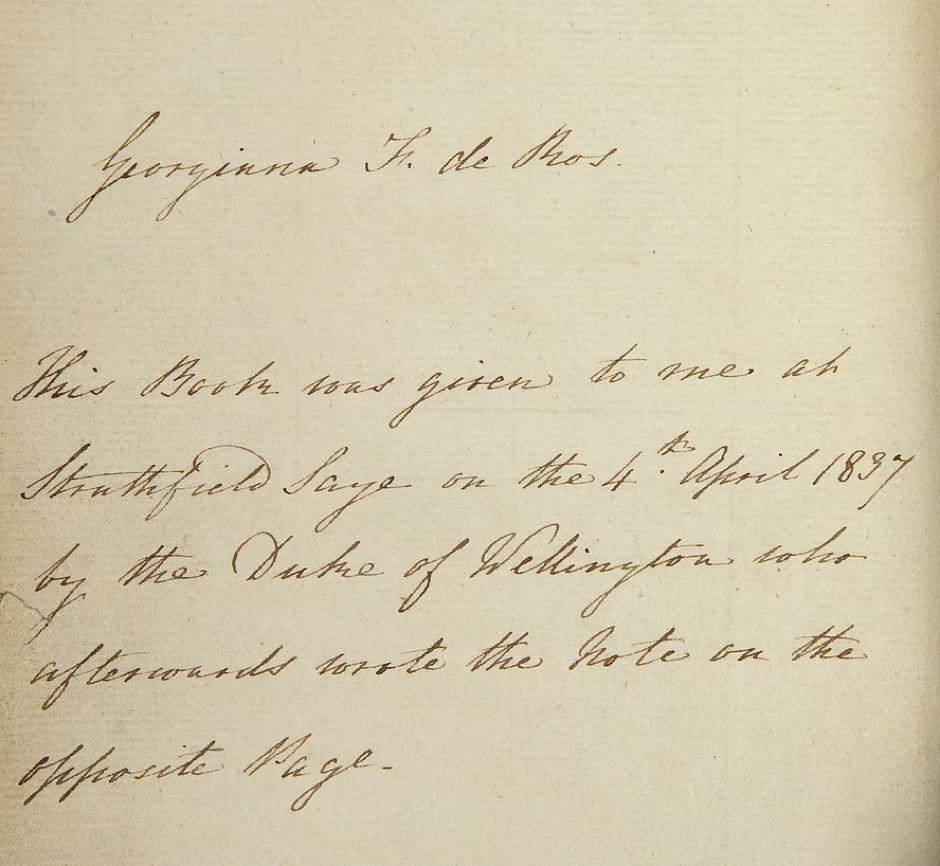 Georgiana F. de Ros.
This Book was given to me at
Strathfield Saye on the 4.th April 1837
by the Duke of Wellington who
afterwards wrote the Note on the
opposite Page.